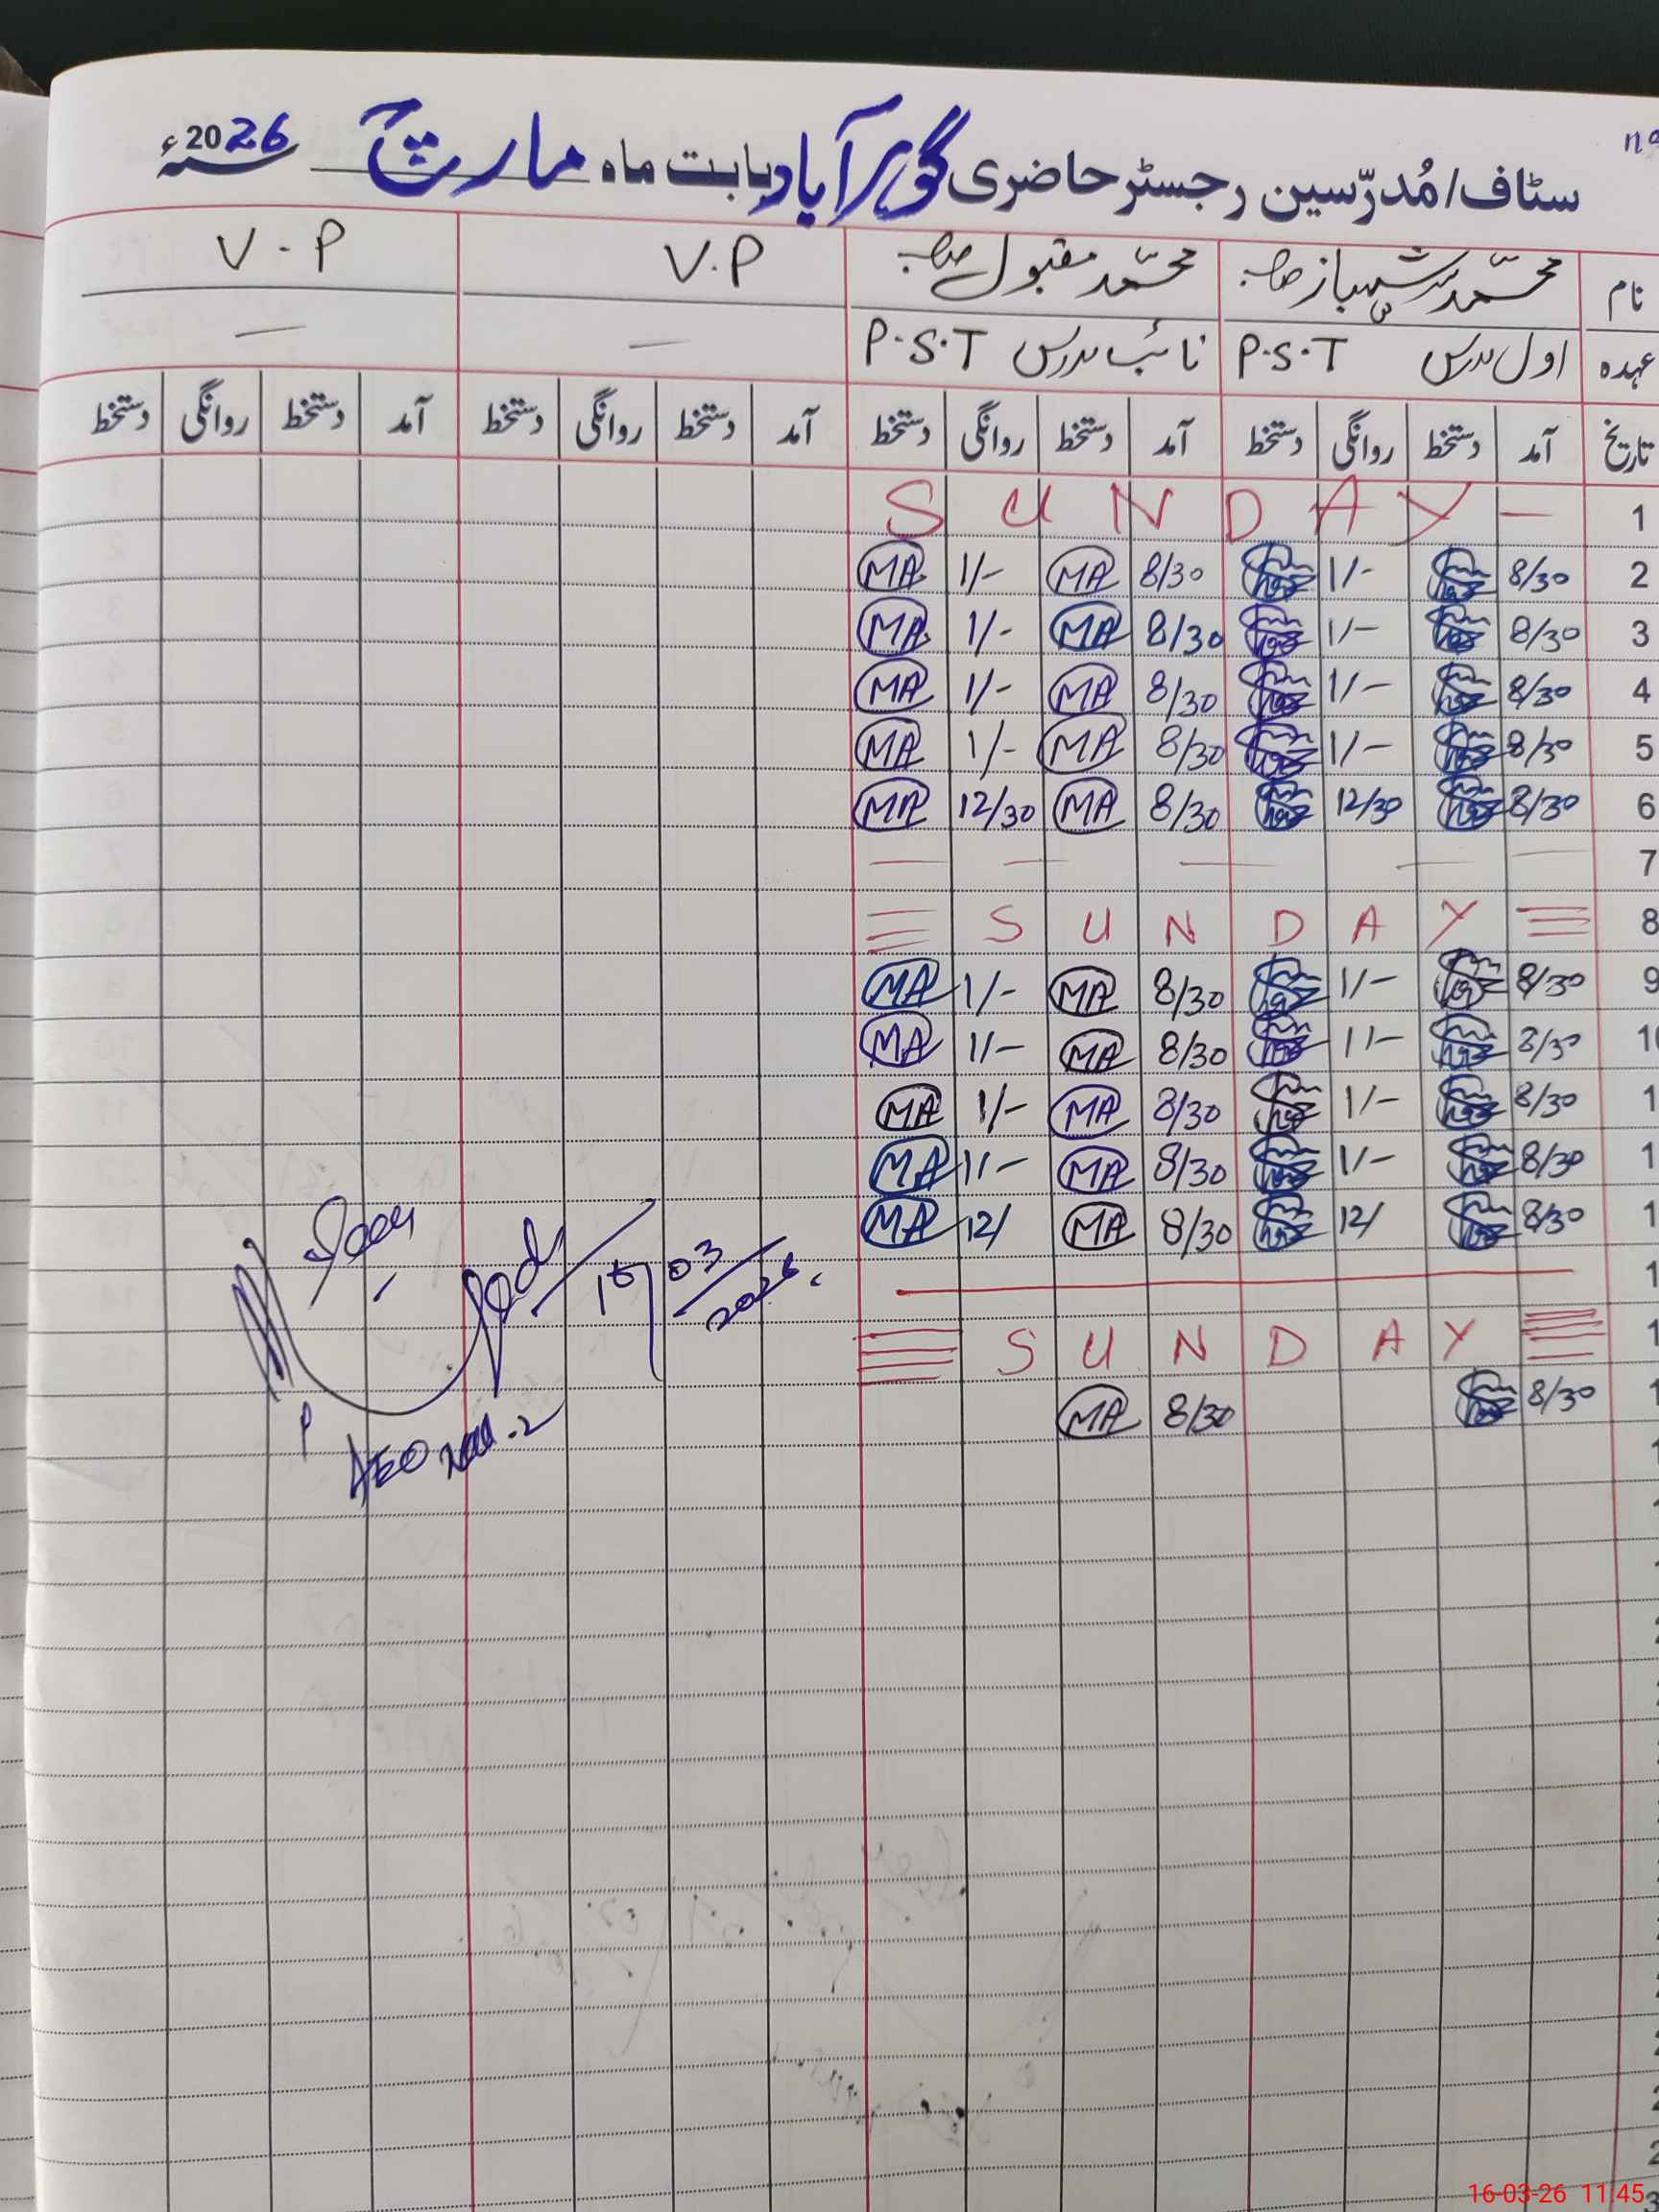 سٹاف/مُدرّسین رجسٹر حاضری گوہرآباد بابت ماہ مارچ 2026ء
نام محمد شہباز صاحب محمد مقبول صاحب V.P V-P
عہدہ اول مدرس P.S.T نائب مدرس P.S.T — —
تاریخ آمد دستخط روانگی دستخط آمد دستخط روانگی دستخط آمد دستخط روانگی دستخط آمد دستخط روانگی دستخط
1 SUNDAY —
2 8/30 1/- 8/30 MA 1/- MA
3 8/30 1/- 8/30 MA 1/- MA
4 8/30 1/- 8/30 MA 1/- MA
5 8/30 1/- 8/30 MA 1/- MA
6 8/30 12/30 8/30 MA 12/30 MA
7 — — — — —
8 SUNDAY
9 8/30 1/- 8/30 MA 1/- MA
10 8/30 1/- 8/30 MA 1/- MA
1 8/30 1/- 8/30 MA 1/- MA
1 8/30 1/- 8/30 MA 1/- MA
1 8/30 12/ 8/30 MA 12/ MA
1
1 SUNDAY
1 8/30 8/30 MA
16/03/2026
AEO
16-03-26 11:45